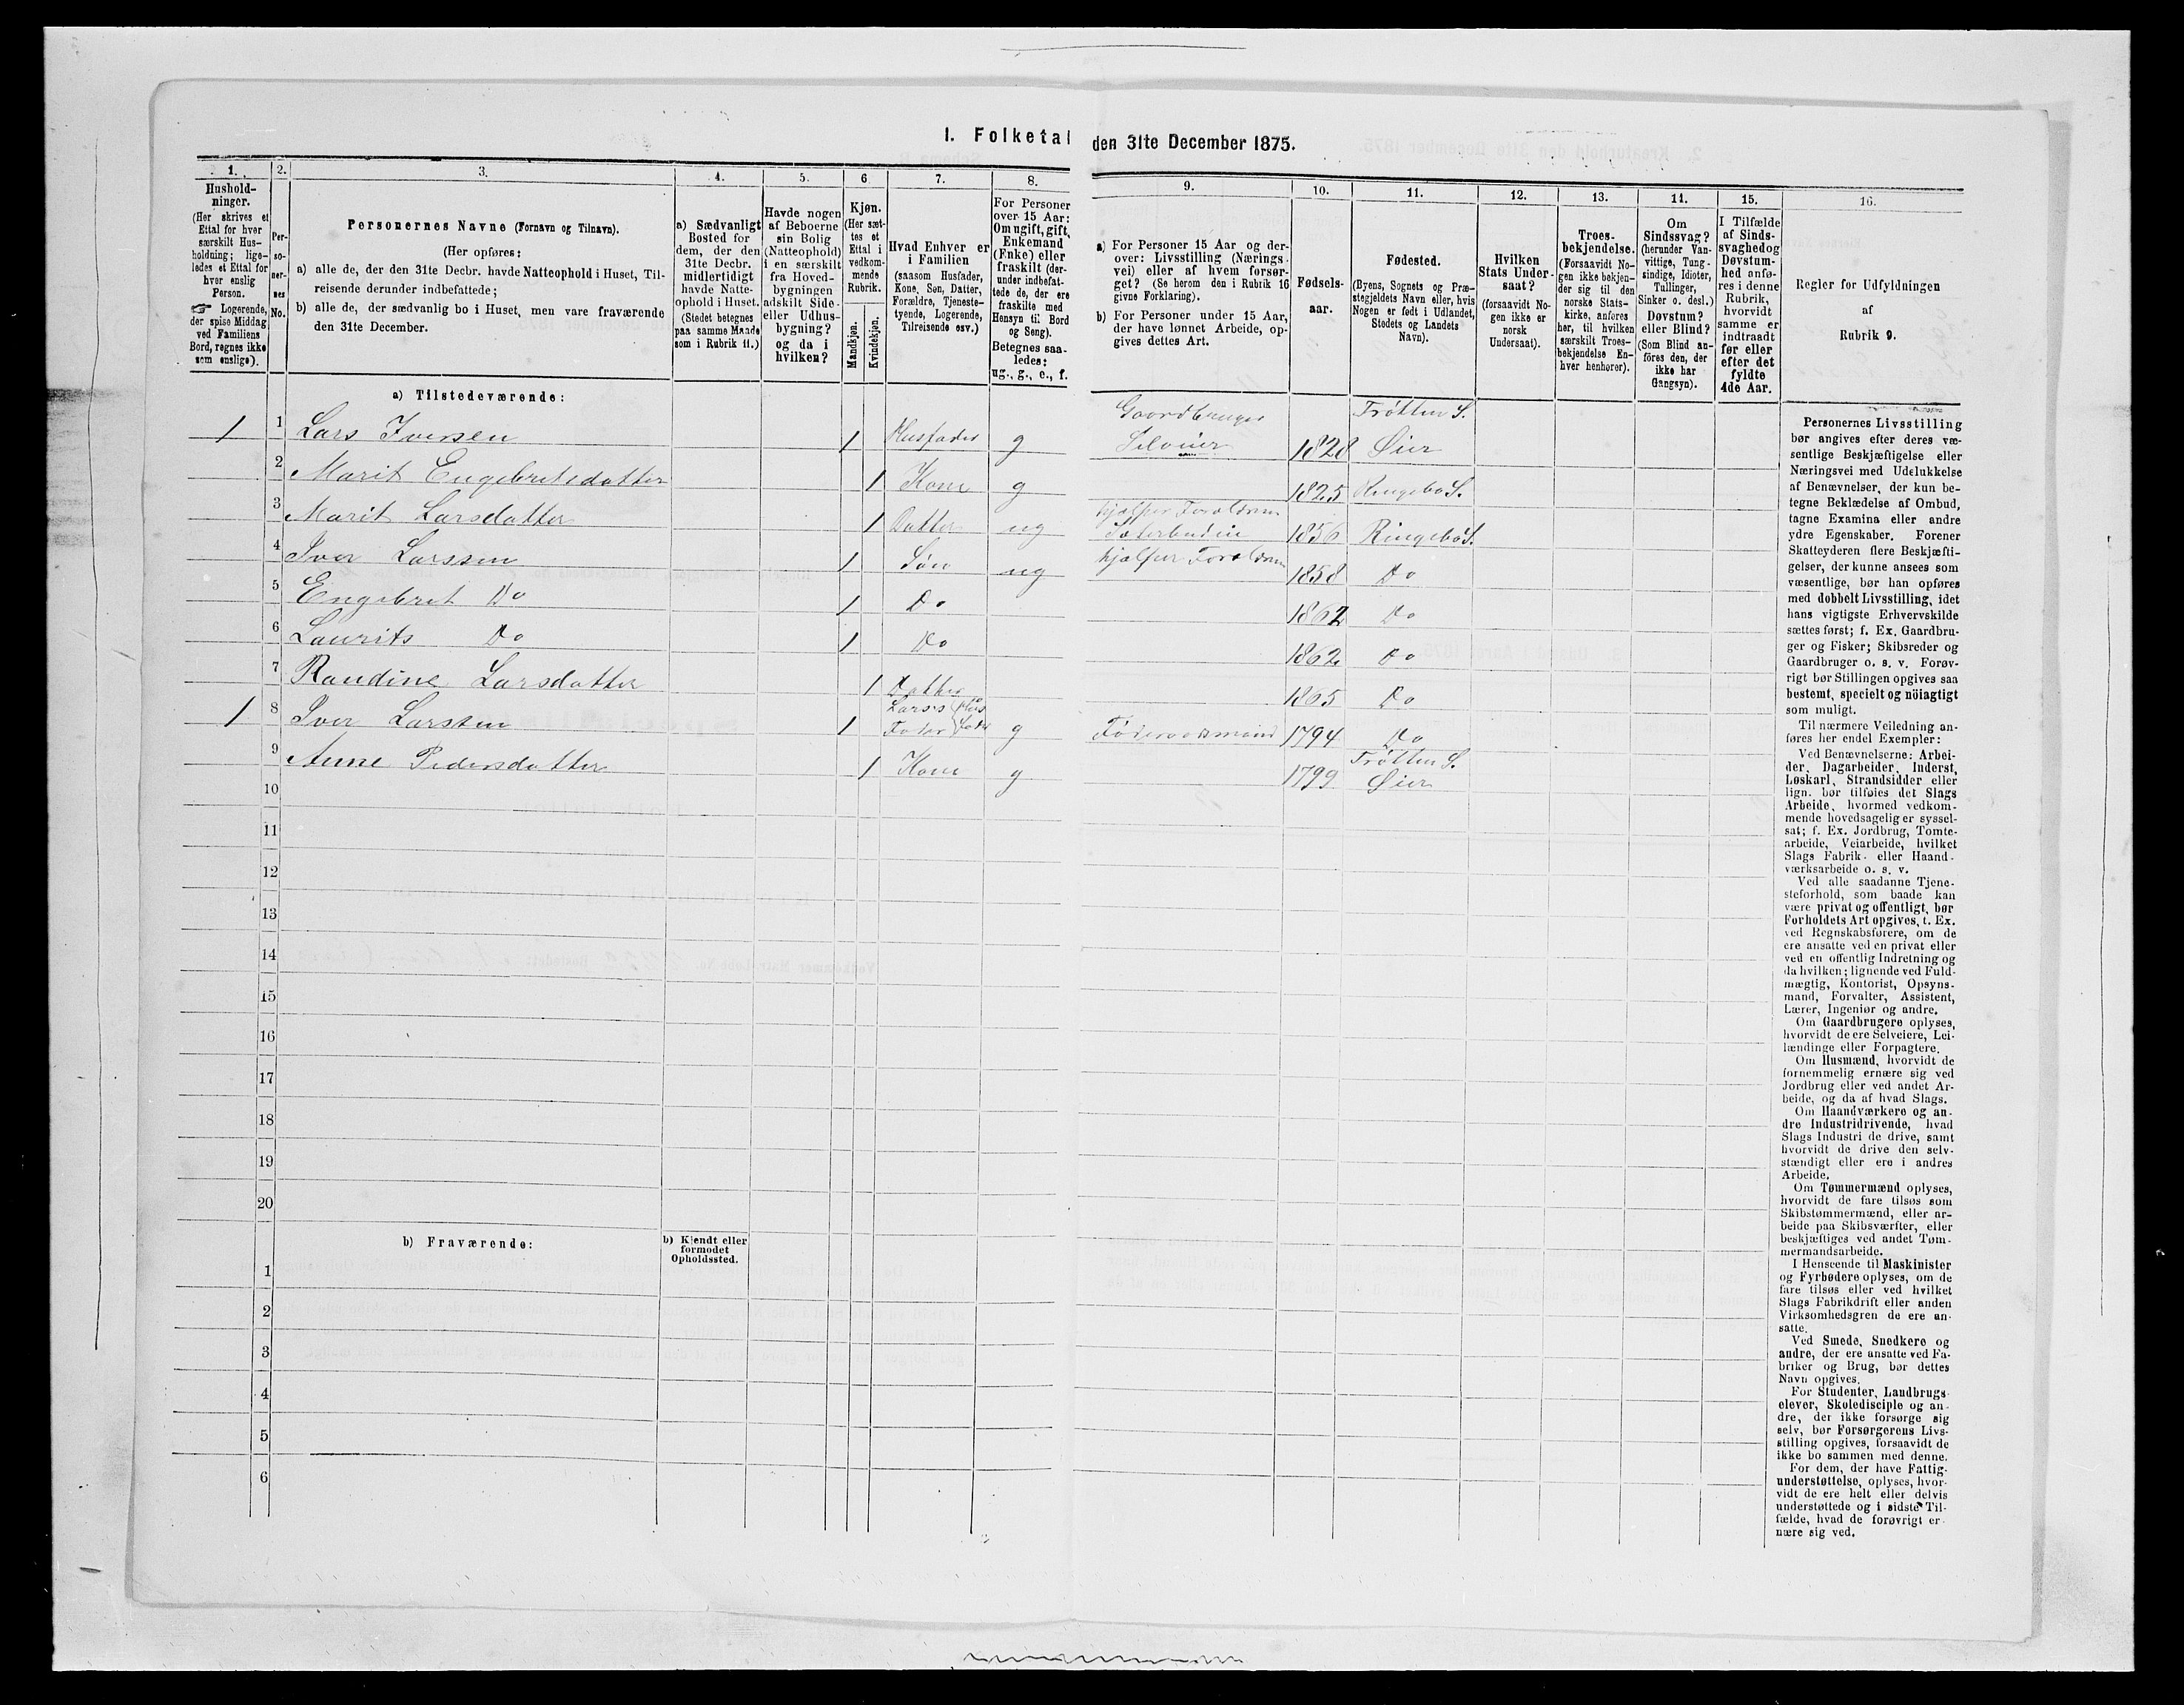 I. Folketal den 31te December 1875.
1.
Hushold-
ninger.
(Her skrives et
Ettal for hver
særskilt Hus-
holdning; lige-
ledes et Ettal for
hver enslig
Person.
☞ Logerende,
der spise Middag
ved Familiens
Bord, regnes ikke
som enslige).
2.
Per-
so-
ner-
nes
No.
3.
Personernes Navne (Fornavn og Tilnavn).
(Her opføres:
a) alle de, der den 31te Decbr. havde Natteophold i Huset, Til-
reisende derunder indbefattede;
b) alle de, der sædvanlig bo i Huset, men vare fraværende
den 31te December.
4.
a) Sædvanligt
Bosted for
dem, der den
31te Decbr.
midlertidigt
havde Natte-
ophold i Huset.
(Stedet betegnes
paa samme Maade
som i Rubrik 11.)
5.
Havde nogen
af Beboerne
sin Bolig
(Natteophold)
i en særskilt
fra Hoved-
bygningen
adskilt Side-
eller Udhus-
bygning?
og da i
hvilken?
6.
Kjøn.
(Her sæt-
tes et
Ettal i
vedkom-
mende
Rubrik.
Mandkjøn.
Kvindekjøn.
7.
Hvad Enhver er
i Familien
(saasom Husfader,
Kone, Søn, Datter,
Forældre, Tjeneste-
tyende, Logerende,
Tilreisende osv.)
8.
For Personer
over 15 Aar:
Om ugift, gift,
Enkemand
(Enke) eller
fraskilt (der-
under indbefat-
tede de, der ere
fraskilte med
Hensyn til Bord
og Seng).
Betegnes saa-
ledes:
ug., g., e., f.
9.
a) For Personer 15 Aar og der-
over: Livsstilling (Nærings-
vei) eller af hvem forsør-
get? (Se herom den i Rubrik 16
givne Forklaring).
b) For Personer under 15 Aar,
der have lønnet Arbeide, op-
gives dettes Art.
10.
Fødsels-
aar.
11.
Fødested.
(Byens, Sognets og Præ-
stegjeldets Navn eller, hvis
Nogen er født i Udlandet,
Stedets og Landets
Navn).
12.
Hvilken
Stats Under-
saat?
(forsaavidt No-
gen ikke er
norsk
Undersaat).
13.
Troes-
bekjendelse.
(Forsaavidt No-
gen ikke bekjen-
der sig til den
norske Stats-
kirke, anføres
her, til hvilken
særskilt Troes-
bekjendelse En-
hver henhører).
14.
Om
Sindssvag?
(herunder Van-
vittige, Tung-
sindige, Idioter,
Tullinger,
Sinker o. desl.)
Døvstum?
eller Blind?
(Som Blind an-
føres den, der
ikke har
Gangsyn).
15.
I Tilfælde
af Sinds-
svaghed og
Døvstum-
hed anfø-
res i denne
Rubrik,
hvorvidt
samme er
indtraadt
før eller
efter det
fyldte
4de Aar.
16.
Regler for Udfyldningen
af
Rubrik 9.
a) Tilstedeværende:
1 1 Lars Iversen 1 Husfader g Gaardbruger Selveier 1828 Trötten S. Øier
2 Marit Engebretsdatter 1 Kone g 1825 Ringebo S.
3 Marit Larsdatter 1 Datter ug hjælper Forældren Sæterbudeie 1856 Ringebo S.
4 Iver Larssen 1 Søn ug hjælper Forældren 1858 Do
5 Engebret Do 1 Do 1862 Do
6 Laurits Do 1 Do 1862 Do
7 Randine Larsdatter 1 Datter 1865 Do
1 8 Iver Larssen 1 Larses Fader g Föderaadsmand 1794 Do
9 Anne Pedersdatter 1 Kone g 1799 Trötten S. Øier
10
11
12
13
14
15
16
17
18
19
20
b) Fraværende:
b) Kjendt eller
formodet
Opholdssted.
1
2
3
4
5
6
Personernes Livsstilling
bør angives efter deres væ-
sentlige Beskjæftigelse eller
Næringsvei med Udelukkelse
af Benævnelser, der kun be-
tegne Beklædelse af Ombud,
tagne Examina eller andre
ydre Egenskaber. Forener
Skatteyderen flere Beskjæfti-
gelser, der kunne ansees som
væsentlige, bør han opføres
med dobbelt Livsstilling, idet
hans vigtigste Erhvervskilde
sættes først; f. Ex. Gaardbru-
ger og Fisker; Skibsreder og
Gaardbruger o. s. v. Forøv-
rigt bør Stillingen opgives saa
bestemt, specielt og nöiagtigt
som muligt.
Til nærmere Veiledning an-
føres her endel Exempler:
Ved Benævnelserne: Arbei-
der, Dagarbeider, Inderst,
Løskarl, Strandsidder eller
lign. bør tilføies det Slags
Arbeide, hvormed vedkom-
mende hovedsagelig er syssel-
sat; f. Ex. Jordbrug, Tomte-
arbeide, Veiarbeide, hvilket
Slags Fabrik- eller Haand-
værksarbeide o. s. v.
Ved alle saadanne Tjene-
steforhold, som baade kan
være privat og offentligt, bør
Forholdets Art opgives, t. Ex.
ved Regnskabsførere, om de
ere ansatte ved en privat eller
ved en offentlig Indretning og
da hvilken; lignende ved Fuld-
mægtig, Kontorist, Opsyns-
mand, Forvalter, Assistent,
Lærer, Ingeniør og andre.
Om Gaardbrugere oplyses,
hvorvidt de ere Selveiere, Lei-
lændinge eller Forpagtere.
Om Husmænd, hvorvidt de
fornemmelig ernære sig ved
Jordbrug eller ved andet Ar-
beide, og da af hvad Slags.
Om Haandværkere og an-
dre Industridrivende, hvad
Slags Industri de drive, samt
hvorvidt de drive den selv-
stændigt eller ere i andres
Arbeide.
Om Tømmermænd oplyses,
hvorvidt de fare tilsøs som
Skibstømmermænd, eller ar-
beide paa Skibsværfter, eller
beskjæftiges ved andet Tøm-
mermandsarbeide.
I Henseende til Maskinister
og Fyrbødere oplyses, om de
fare tilsøs eller ved hvilket
Slags Fabrikdrift eller anden
Virksomhedsgren de ere an-
satte.
Ved Smede, Snedkere og
andre, der ere ansatte ved Fa-
briker og Brug, bør dettes
Navn opgives.
For Studenter, Landbrugs-
elever, Skoledisciple og an-
dre, der ikke forsørge sig
selv, bør Forsørgerens Livs-
stilling opgives, forsaavidt de
ikke bo sammen med denne.
For dem, der have Fattig-
understøttelse, oplyses, hvor-
vidt de ere helt eller delvis
understøttede og i sidste Til-
fælde, hvad de forøvrigt er-
nære sig ved.